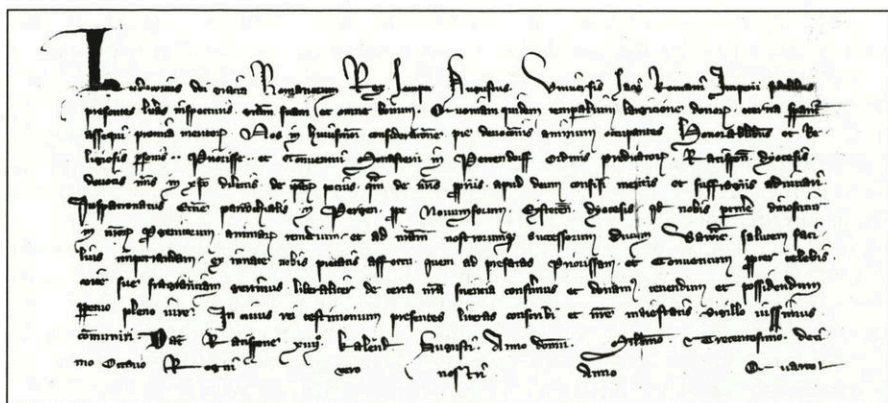 Ludowicus dei gracia Romanorum Rex semper Augustus Universis sacri Romani Imperii fidelibus
presentes litteras inspecturis graciam suam et omne bonum. Quoniam quidem temporalium largicione donorum eterna
assequi premia Nos in huiusmodi consideracione pie devocionis animum occupantes Honorabilibus et Re
ligiosis personis .. Priorisse .. et Conventui Monasterii in Petendorff Ordinis predicatorum Ratisponensis dyocesis
devotis nostris in Christo dilectis de quarum pocius quam de nostris propriis apud deum confisi meritis et suffragiis adiuvari
Juspatronatus Ecclesie parrochialis in Pergen prope Novumforum Eysteten dyocesis
in nostrorum Progenitorum animarum remedium et ad nostram nostrorumque successorum salutem faci
lius impetrandam ex innate nobis pietatis affectu quem ad prefatas Priorissam et Conventum propter celebris
sue fragranciam gerimus liberaliter de certa nostra sciencia conferimus et donamus tenendum et possidendum
perpetuo pleno iure. In cuius rei testimonium presentes litteras conscribi et nostre maiestatis sigillo iussimus
communiri. Dat Ratispone xiiij kalend Augusti. Anno domini. Millesimo Trecentesimo. deci
mo Octavo Regni vero nostri Anno Quarto